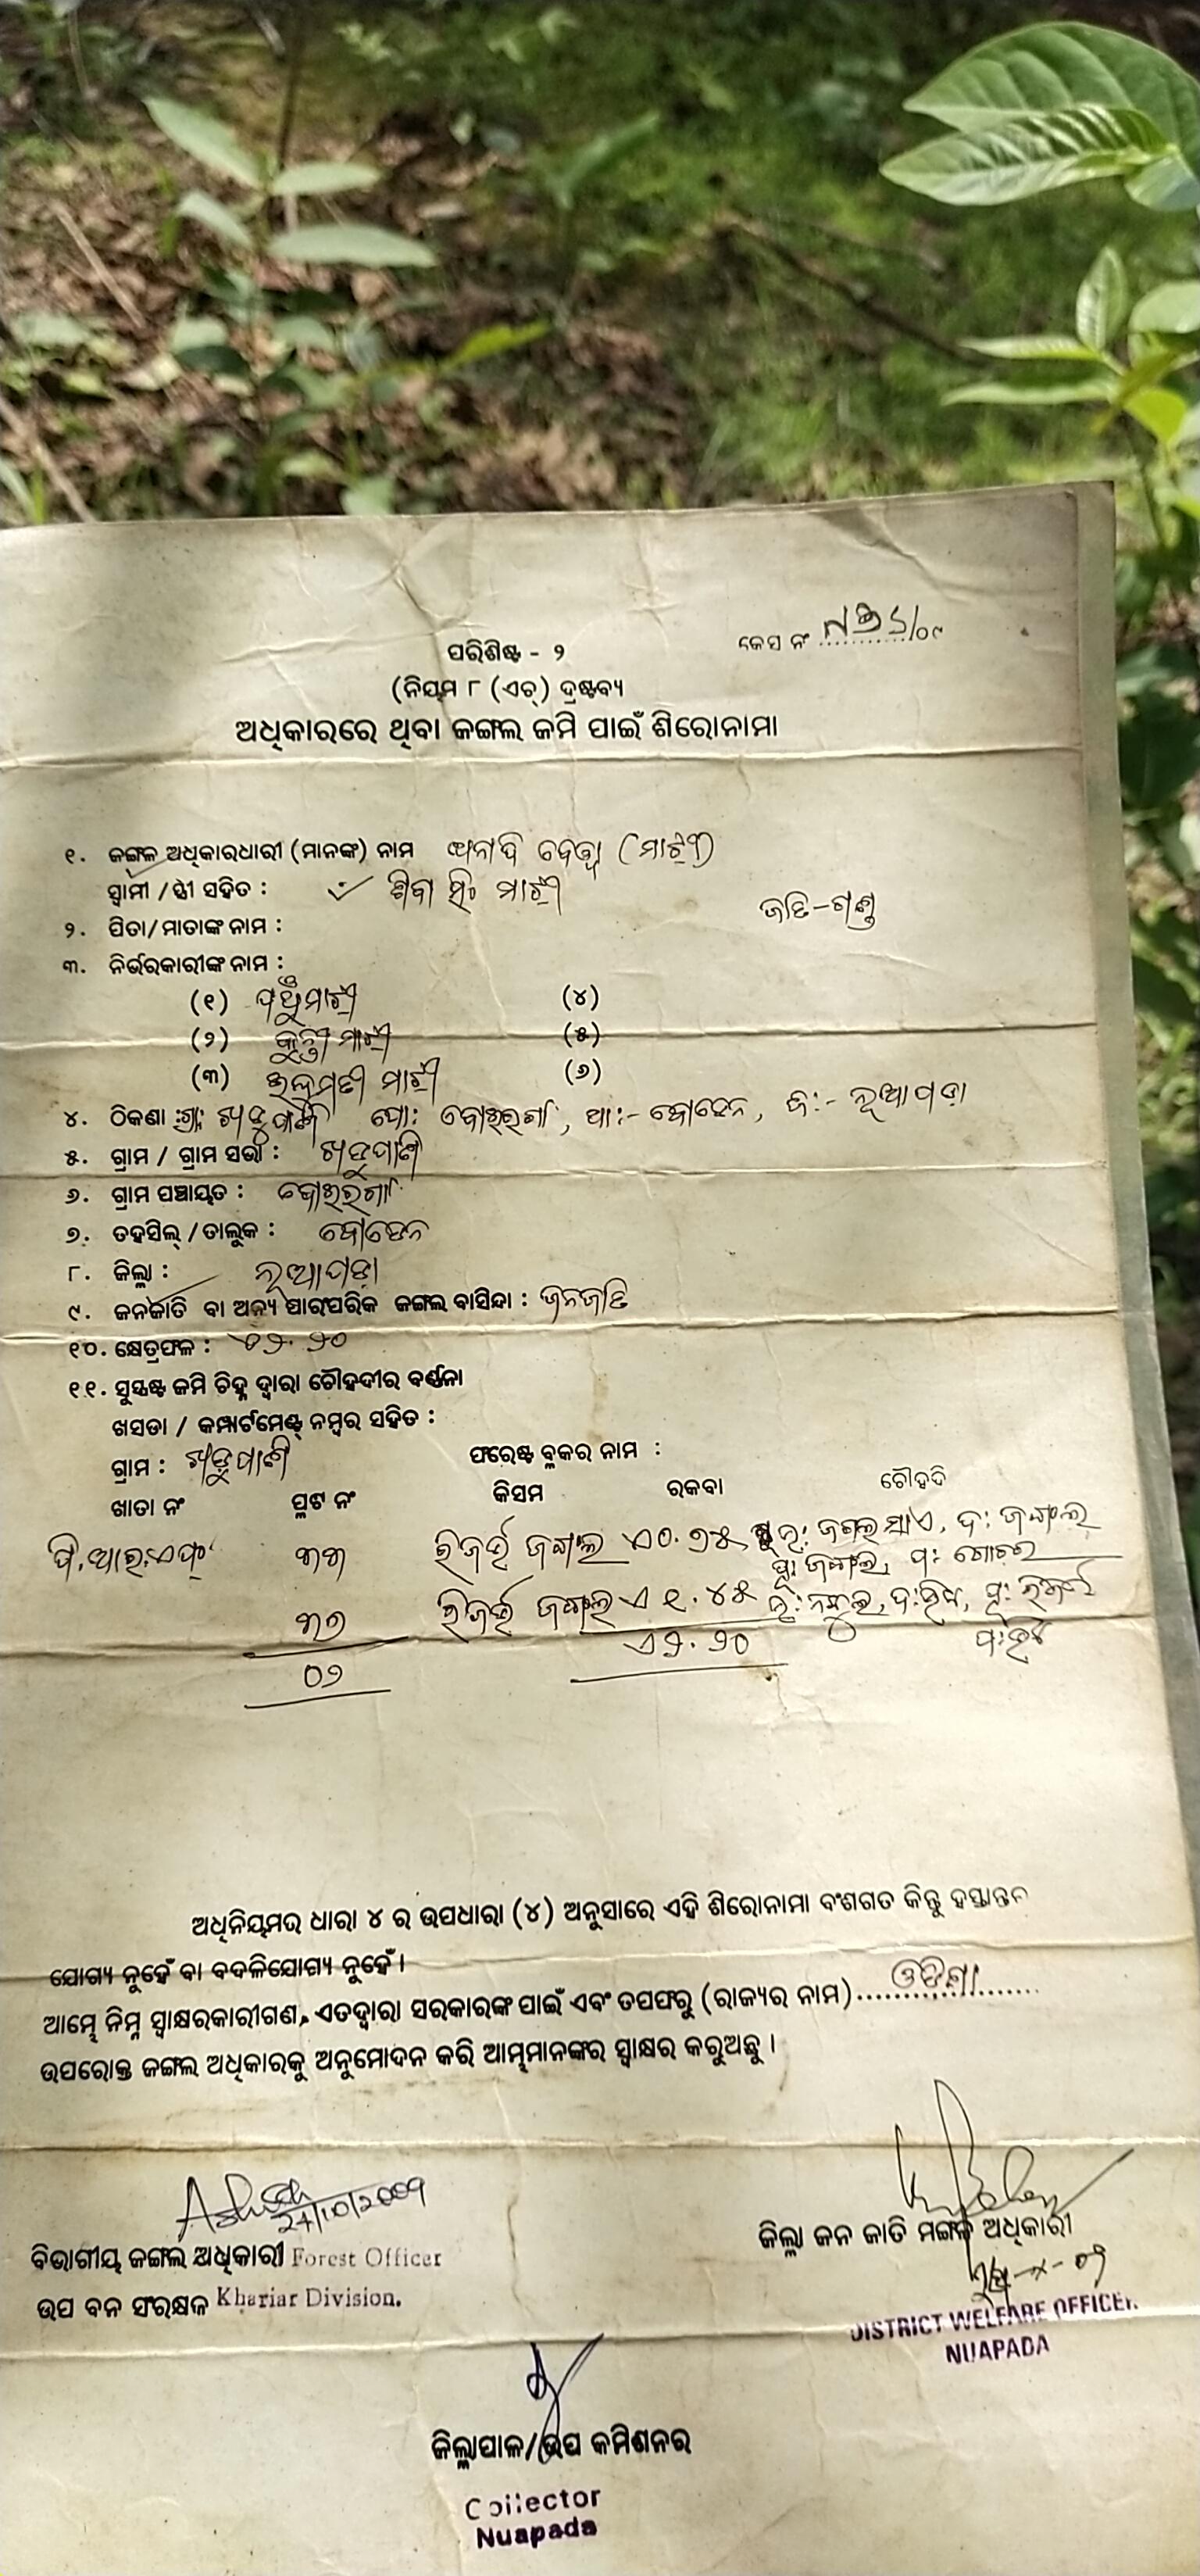 କେସ ନଂ ........../୦୯
ପରିଶିଷ୍ଟ - ୨
(ନିୟମ ୮ (ଏଚ୍) ଦ୍ରଷ୍ଟବ୍ୟ
ଅଧିକାରରେ ଥିବା ଜଙ୍ଗଲ ଜମି ପାଇଁ ଶିରୋନାମା
୧. ଜଙ୍ଗଲ ଅଧିକାରଧାରୀ (ମାନଙ୍କ) ନାମ (ମାଝୀ)
ସ୍ଵାମୀ / ସ୍ତ୍ରୀ ସହିତ : ଶିବା ସିଂ ମାଝୀ
ଜାତି-ଗଣ୍ଡ
୨. ପିତା/ମାତାଙ୍କ ନାମ :
୩. ନିର୍ଭରକାରୀଙ୍କ ନାମ :
(୧) ମାଝୀ (୪)
(୨) କୁନ୍ତୀ ମାଝୀ (୫)
(୩) ଇନ୍ଦୁମତୀ ମାଝୀ (୬)
୪. ଠିକଣା :ଗ୍ରା: ଖଡୁପାଣି ପୋ: ବୋଇରଗାଁ, ଥା:- ବୋଡେନ, ଜି:- ନୂଆପଡା
୫. ଗ୍ରାମ / ଗ୍ରାମ ସଭା : ଖଡୁପାଣି
୬. ଗ୍ରାମ ପଞ୍ଚାୟତ : ବୋଇରଗାଁ
୭. ତହସିଲ୍ / ତାଲୁକ : ବୋଡେନ
୮. ଜିଲ୍ଲା : ନୂଆପଡା
୯. ଜନଜାତି ବା ଅନ୍ୟ ପାରମ୍ପରିକ ଜଙ୍ଗଲ ବାସିନ୍ଦା : ଜନଜାତି
୧୦. କ୍ଷେତ୍ରଫଳ : ଏ୨.୨୦
୧୧. ସୁସ୍ପଷ୍ଟ ଜମି ଚିହ୍ନ ଦ୍ଵାରା ଚୌହଦୀର ବର୍ଣ୍ଣନା
ଖସଡା / କମ୍ପାର୍ଟମେଣ୍ଟ୍ ନମ୍ବର ସହିତ :
ଗ୍ରାମ : ଖଡୁପାଣି ଫରେଷ୍ଟ ବ୍ଲକର ନାମ :
ଖାତା ନଂ ପ୍ଲଟ ନଂ କିସମ ରକବା ଚୌହଦି
ପି.ଆର.ଏଫ୍ ୩୩ ରିଜର୍ଭ ଜଙ୍ଗଲ ଏ୦.୭୫ ଉ: ଜଙ୍ଗଲ ଦ: ଜଙ୍ଗଲ
ପୂ: ଜଙ୍ଗଲ, ପ: ଗୋଚର
୩୭ ରିଜର୍ଭ ଜଙ୍ଗଲ ଏ ୧.୪୫ ଉ: ନକୁଲ, ପୂ: ରିଜର୍ଭ
୦୨ ଏ୨.୨୦
ଅଧିନିୟମର ଧାରା ୪ ର ଉପଧାରା (୪) ଅନୁସାରେ ଏହି ଶିରୋନାମା ବଂଶଗତ କିନ୍ତୁ ହସ୍ତାନ୍ତର
ଯୋଗ୍ୟ ନୁହେଁ ବା ବଦଳିଯୋଗ୍ୟ ନୁହେଁ ।
ଆମ୍ଭେ ନିମ୍ନ ସ୍ଵାକ୍ଷରକାରୀଗଣ, ଏତଦ୍ଵାରା ସରକାରଙ୍କ ପାଇଁ ଏବଂ ତପଫରୁ (ରାଜ୍ୟର ନାମ) ଓଡିଶା
ଉପରୋକ୍ତ ଜଙ୍ଗଲ ଅଧିକାରକୁ ଅନୁମୋଦନ କରି ଆମ୍ଭମାନଙ୍କର ସ୍ଵାକ୍ଷର କରୁଅଛୁ ।
24/10/2009
ବିଭାଗୀୟ ଜଙ୍ଗଲ ଅଧିକାରୀ Forest Officer
ଉପ ବନ ସଂରକ୍ଷକ Khariar Division.
ଜିଲ୍ଲା ଜନ ଜାତି ମଙ୍ଗଳ ଅଧିକାରୀ
DISTRICT WELFARE OFFICER
NUAPADA
ଜିଲ୍ଲାପାଳ/ଉପ କମିଶନର
Collector
Nuapada